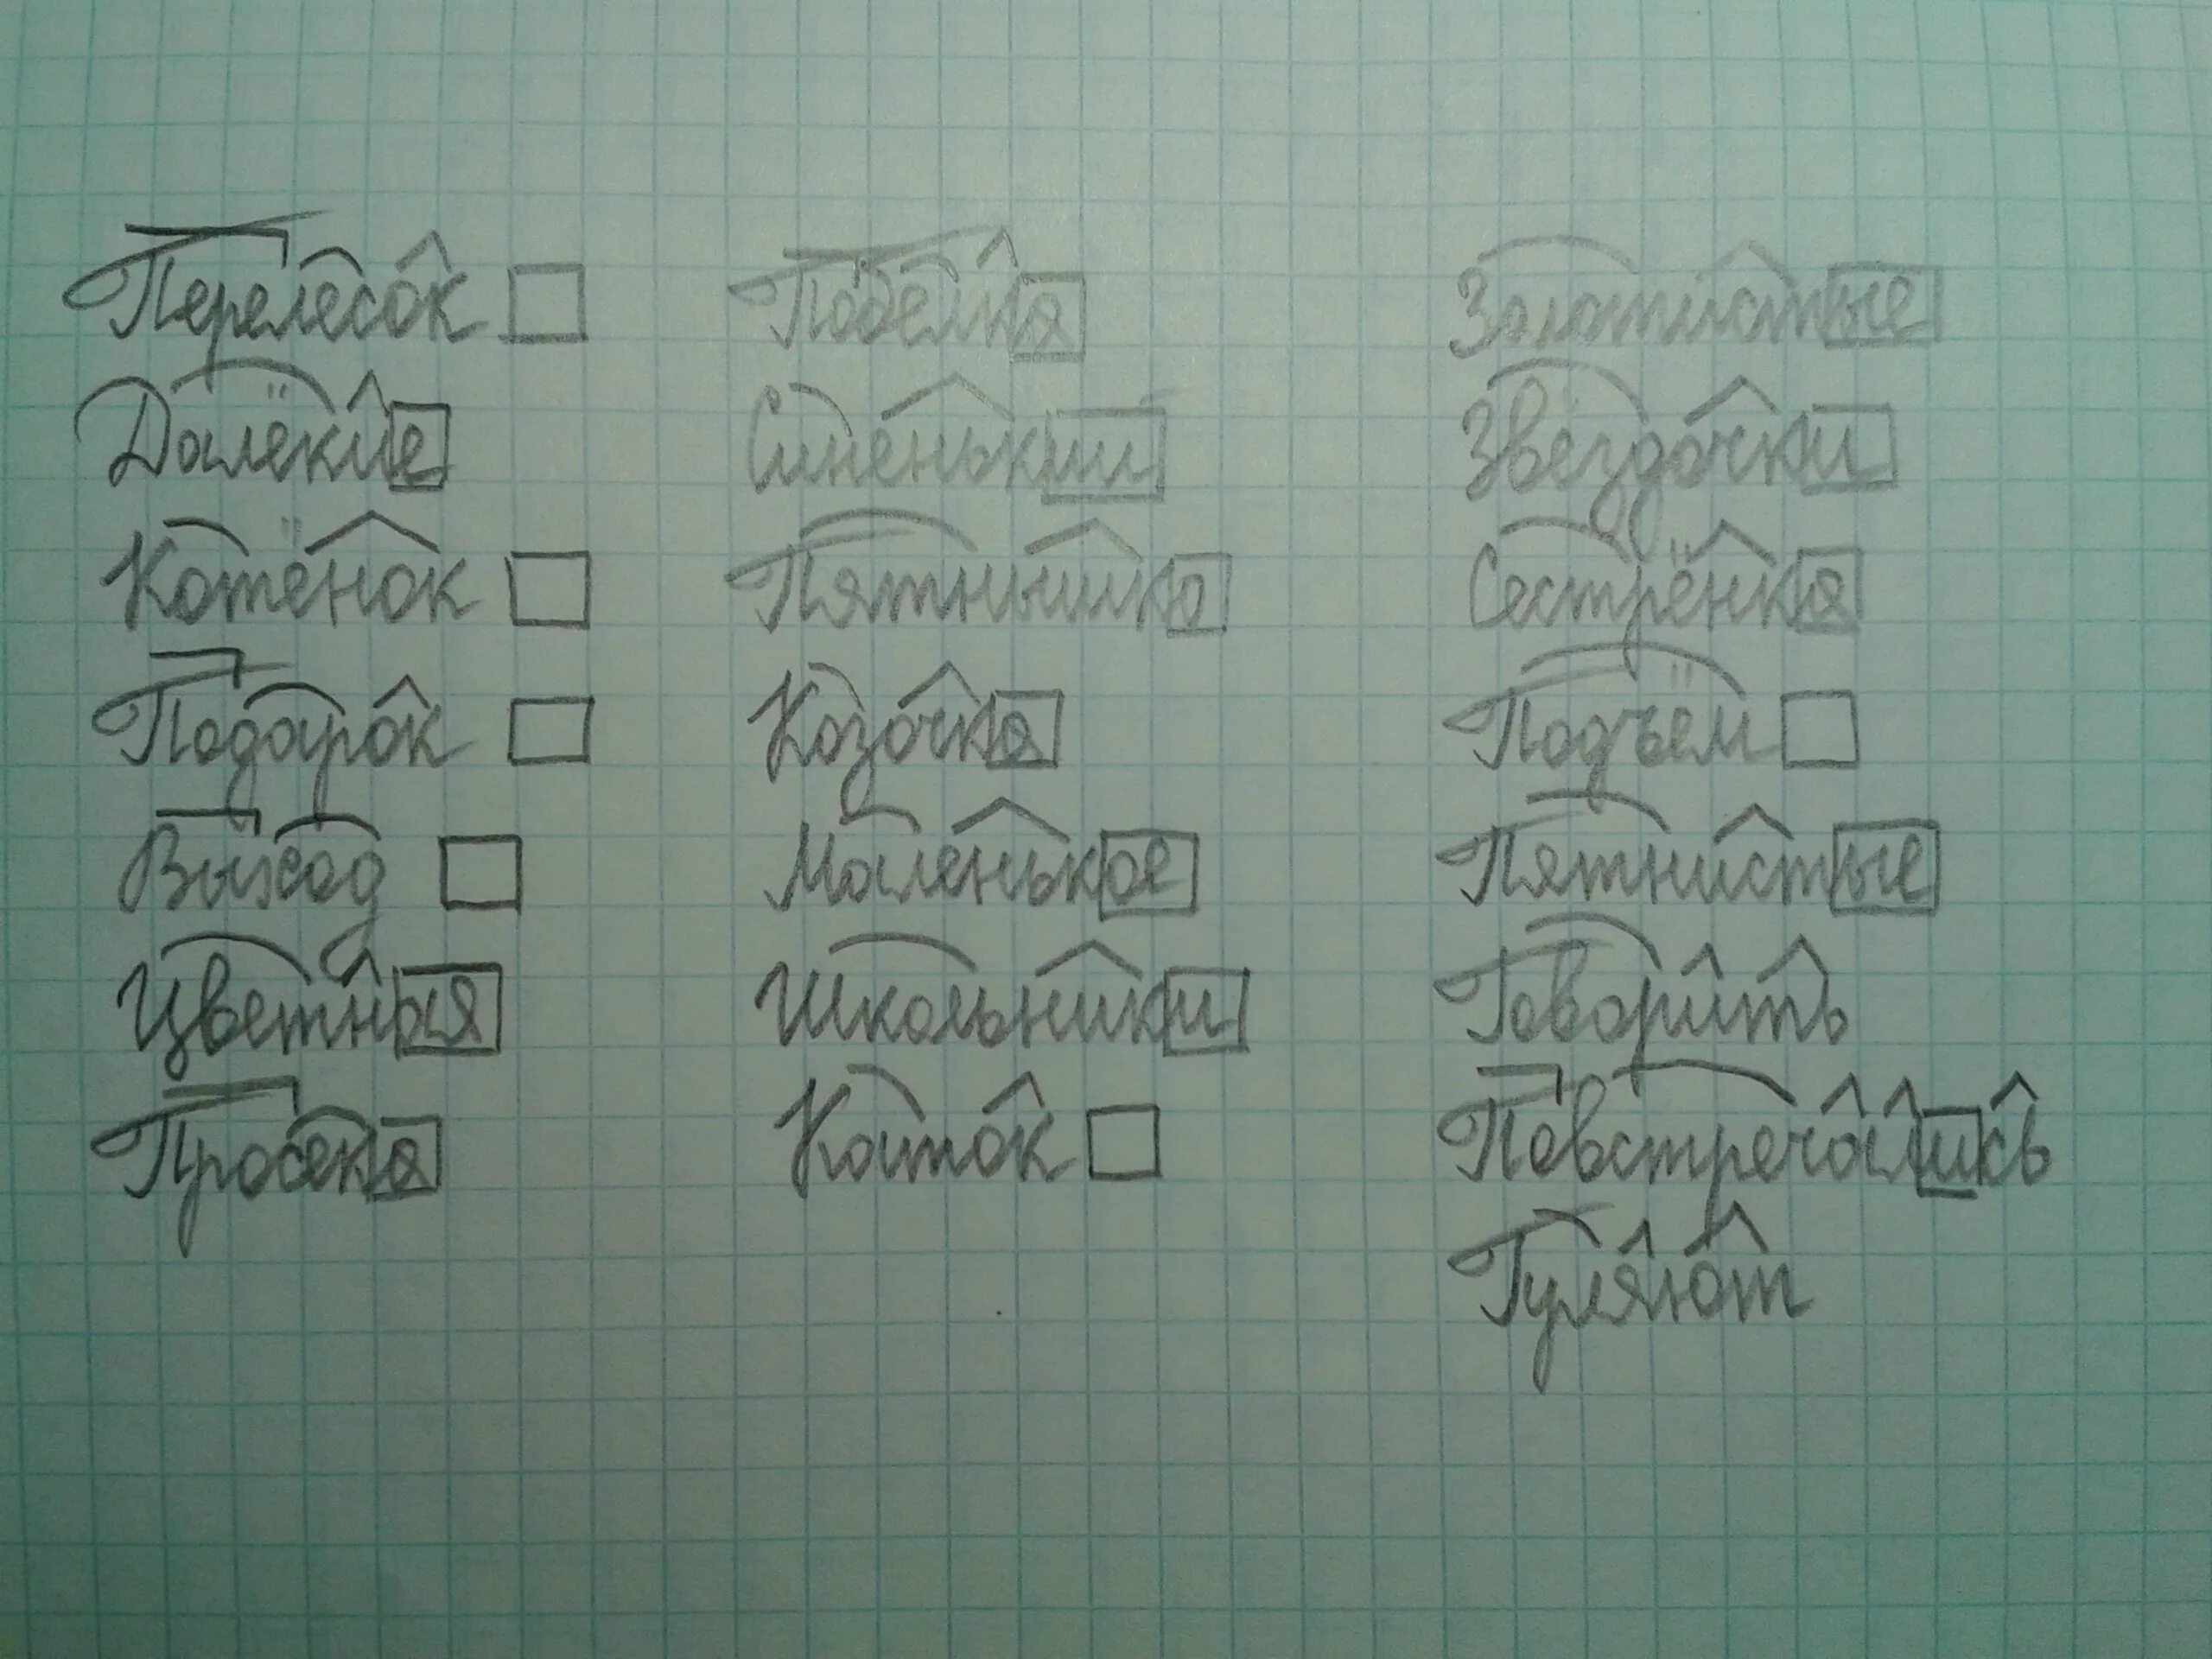 Перелесок
Далёкие
Котёнок
Подарок
Выход
Цветная
Просека
Побелка
Синенький
Пятнышко
Козочка
Маленькое
Школьники
Каток
Золотистые
Звёздочки
Сестрёнка
Подъём
Пятнистые
Говорить
Повстречались
Гуляют